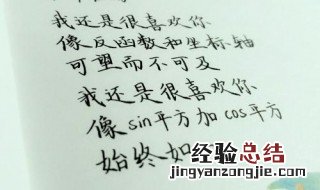 我还是很喜欢你
像反函数和坐标轴
可望而不可及
我还是很喜欢你
像sin平方加cos平方
始终如
经验总结
www.jingyanzongjie.com